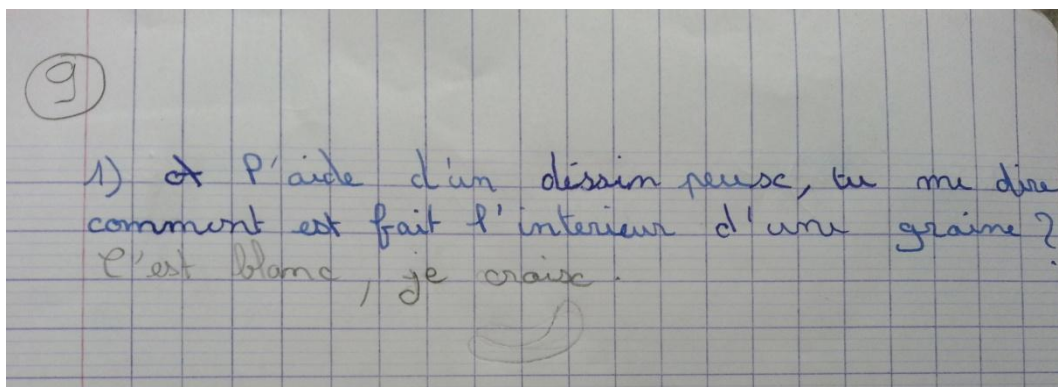 9
1) A l'aide d'un déssin peusc, tu me dire
comment est fait l'interieur d'une graine?
C'est blanc, je croisc.